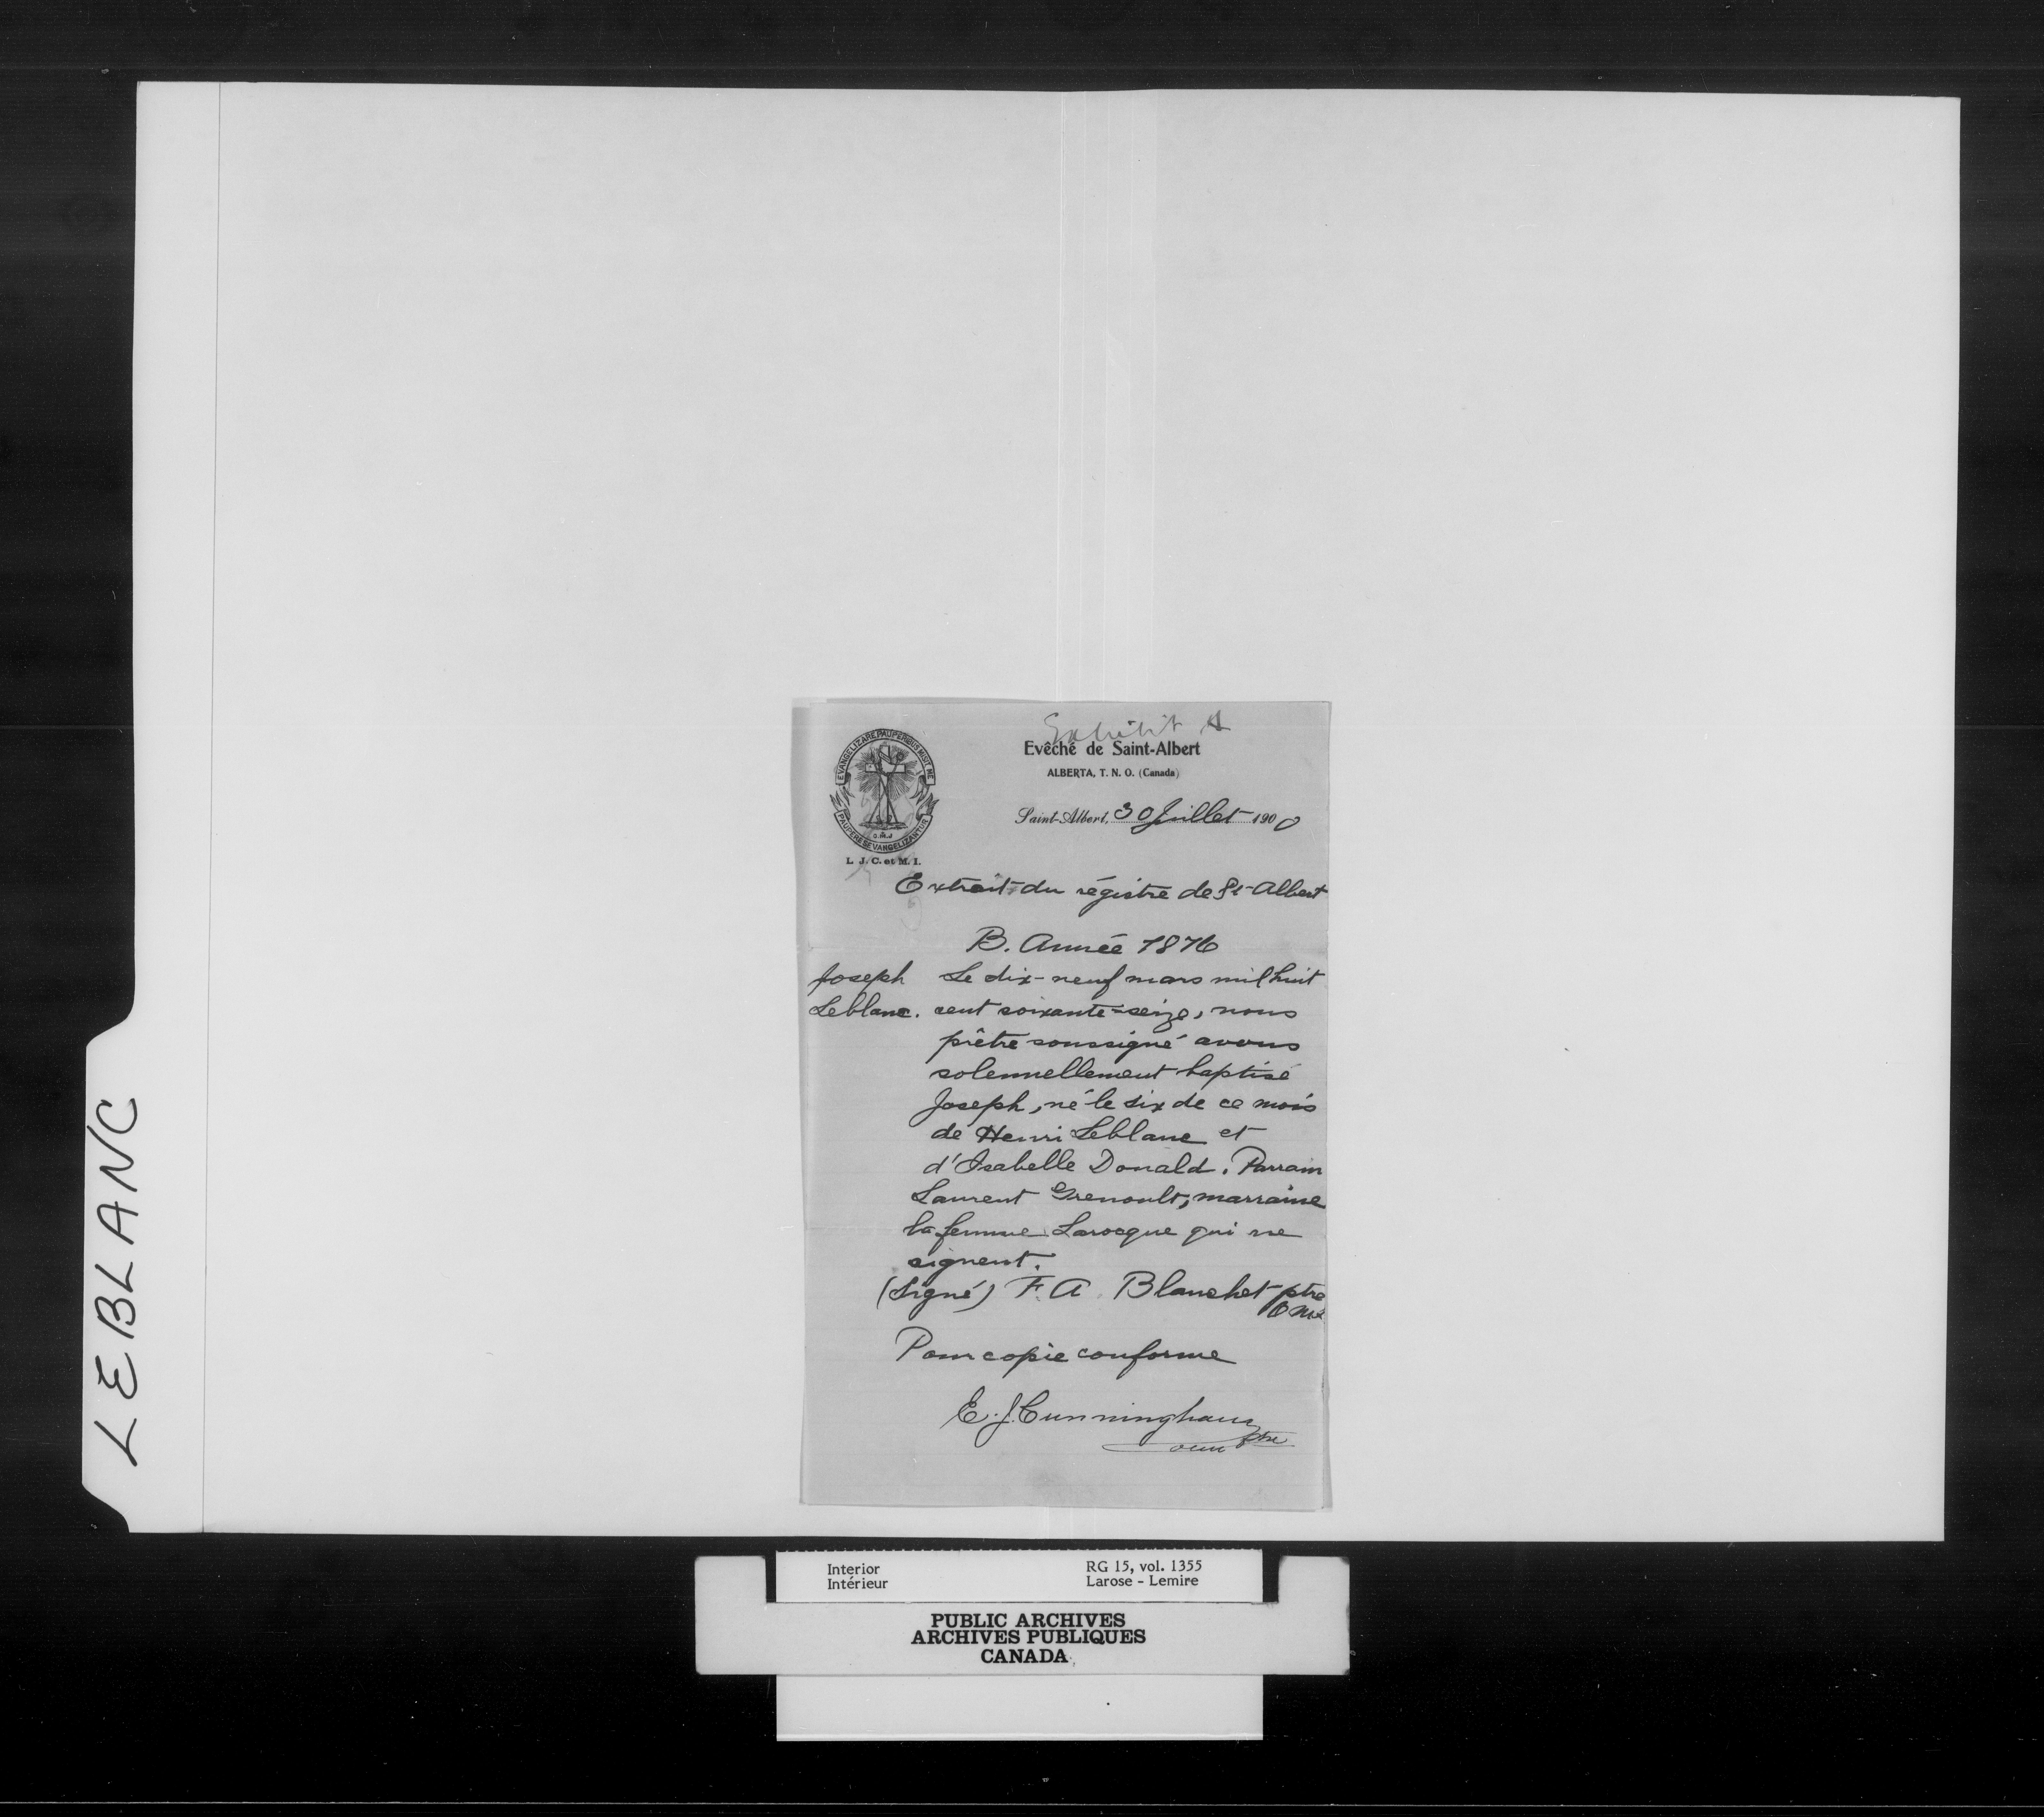 LEBLANC
Exhibit A
EVANGELIZARE PAUPERIBUS MISIT ME
PAUPERES EVANGELIZANTUR
O.M.I
L. J. C. et M. I.
Evêché de Saint-Albert
ALBERTA, T. N. O. (Canada)
Saint-Albert, 30 Juillet 1900
Extrait du régistre de St-Albert
B. Année 1876
Joseph Le dix-neuf mars mil huit
Leblanc. cent soixante-seize, nous
prêtre soussigné avons
solennellement baptisé
Joseph, né le six de ce mois
de Henri Leblanc et
d'Isabelle Donald. Parrain
Laurent Grenoult, marraine
la femme Larocque qui ne
signent.
(Signé) F. A. Blanchet ptre
OMI
Pour copie conforme
E. J. Cunningham
ptre
omi
Interior RG 15, vol. 1355
Intérieur Larose - Lemire
PUBLIC ARCHIVES
ARCHIVES PUBLIQUES
CANADA